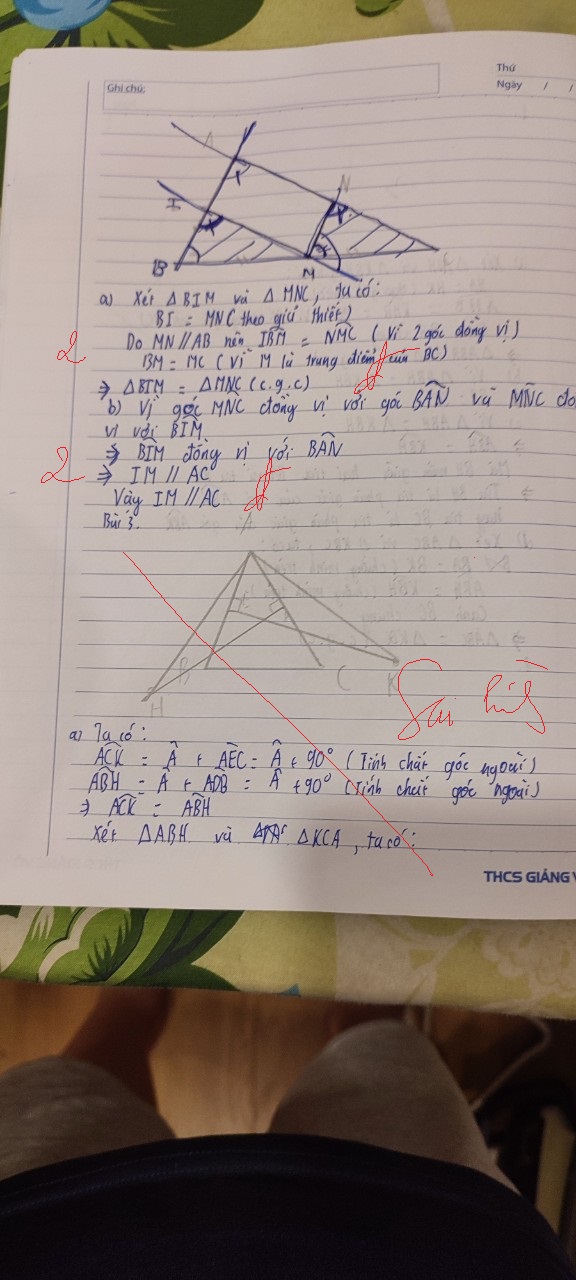 Ghi chú:
Thứ
Ngày / /
A
N
I
B
M
a) Xét ΔBIM và ΔMNC, ta có:
BI = MNC theo giả thiết)
Do MN // AB nên IBM̂ = NMĈ (Vì 2 góc đồng vị)
2
BM = MC (Vì M là trung điểm của BC)
⇒ ΔBIM = ΔMNC (c.g.c)
b) Vì góc MNC đồng vị với góc BÂN và MN̂C đồ
vị với BIM̂
⇒ BIM̂ đồng vị với BÂN
2 ⇒ IM // AC
Vậy IM // AC
Bài 3.
A
B
C
K
H
Sai hình
a) Ta có:
ACK̂ = Â + AEĈ = Â + 90° (Tính chất góc ngoài)
ABĤ = Â + ADB̂ = Â + 90° (Tính chất góc ngoài)
⇒ ACK̂ = ABH
Xét ΔABH và ΔKCA, ta có:
THCS GIẢNG V